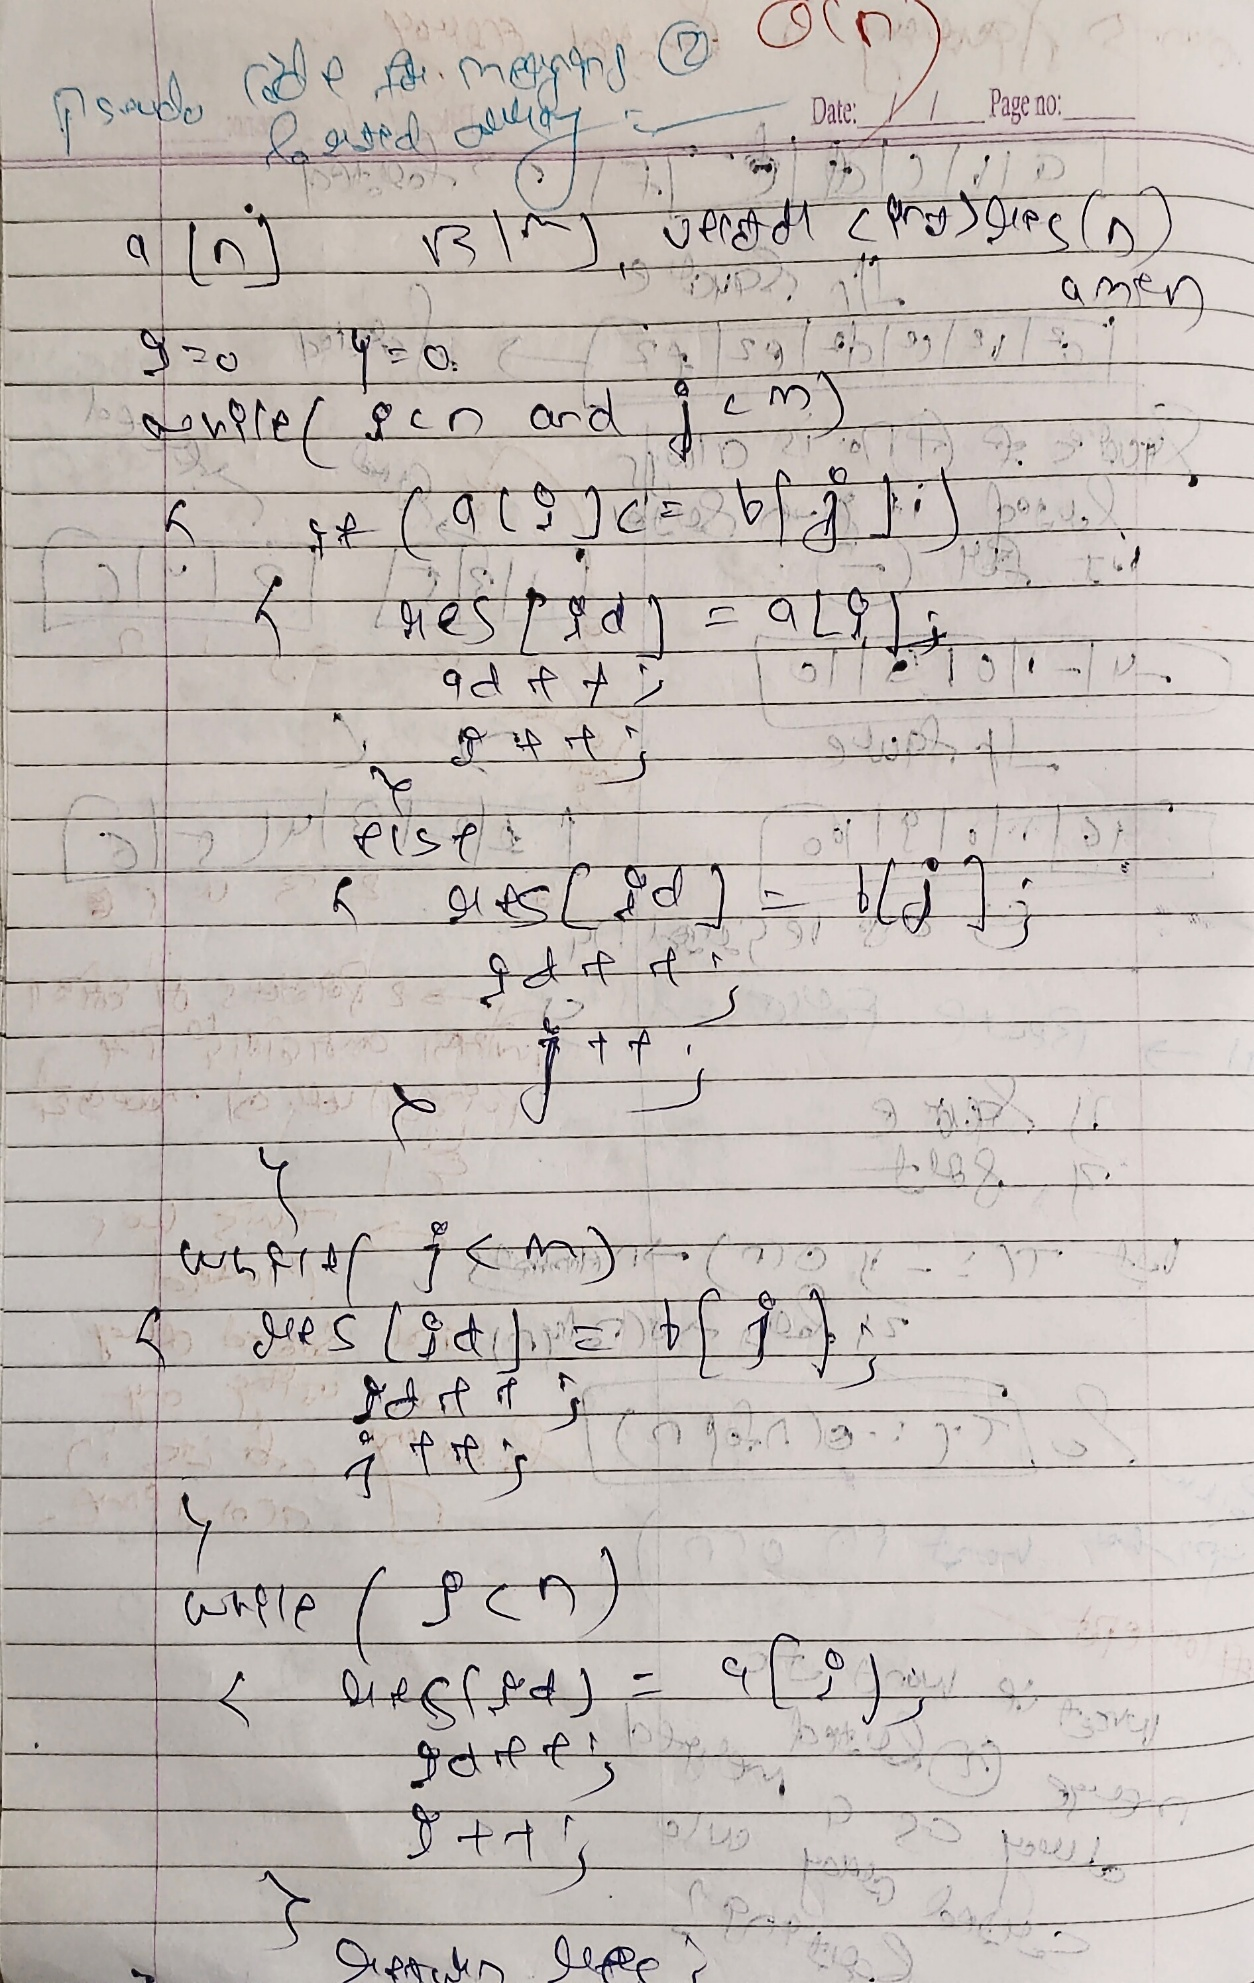 O(n)
Pseudo Code for merging 2
sorted array :-
Date: / / Page no:
a[n] B[m], vector <int> res(n)
i=0 j=0
while( i<n and j<m)
{ if (a[i]<= b[j])
{ res[id] = a[i];
id++;
i++;
}
else
{ res[id] = b[j];
id++;
j++;
}
}
while( j<m)
{ res[id] = b[j];
id++;
j++;
}
while (i<n)
{ res[id] = a[i];
id++;
i++;
}
return res;